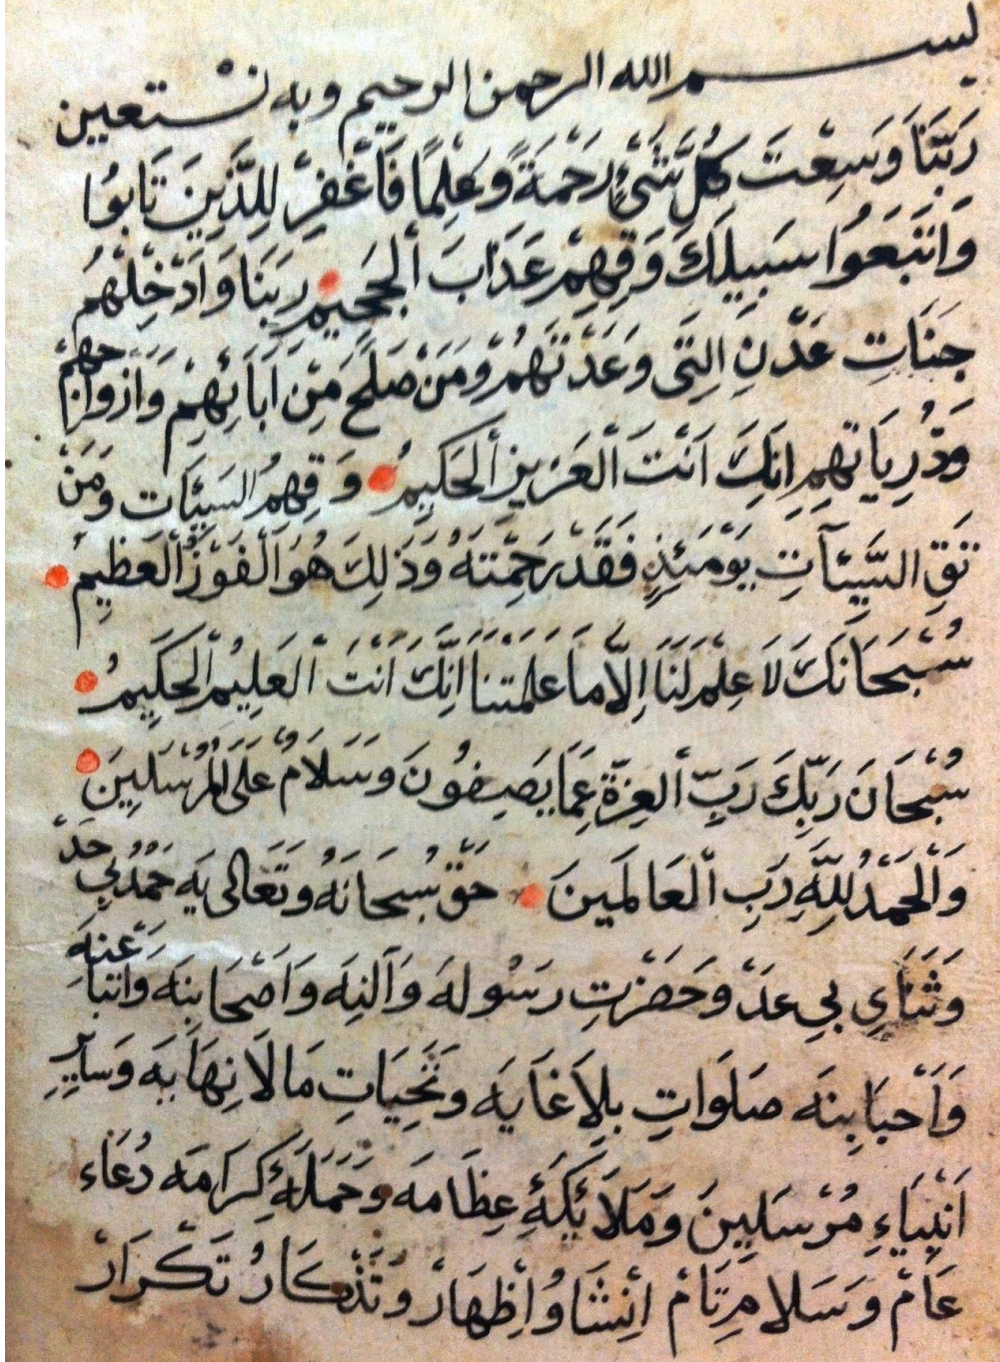 بسم الله الرحمن الرحيم وبه نستعين
رَبَّنَا وَسِعْتَ كُلَّ شَيْءٍ رَحْمَةً وَعِلْمًا فَاغْفِرْ لِلَّذِينَ تَابُوا
وَاتَّبَعُوا سَبِيلَكَ وَقِهِمْ عَذَابَ الْجَحِيمِ رَبَنَا وَاَدْخِلْهُمْ
جَنَاتِ عَدْنٍ الَتِى وَعَدْتَهُمْ وَمَنْ صَلَحَ مِنْ اَبَائِهِمْ وَاَزْوَاجِهِمْ
وَذُرِيَاتِهِمْ اِنَكَ اَنْتَ الْعَزِيزُ الْحَكِيمُ وَقِهِمُ السَيِئَاتِ وَمَنْ
تَقِ السَّيِئَآتِ يَوْمَئِذٍ فَقَدْ رَحِمْتَهُ وَذَلِكَ هُوَ الْفَوْزُ الْعَظِيمُ
سُبْحَانَكَ لَا عِلْمَ لَنَا اِلَّا مَا عَلَمْتَنَا اِنَّكَ اَنْتَ الْعَلِيمُ الْحَكِيمُ
سُبْحَانَ رَبِّكَ رَبِّ الْعِزَّةِ عَمَا يَصِفُونَ وَسَلَامٌ عَلَى الْمُرْسَلِينَ
وَالْحَمْدُ لِلَّهِ رَبِ الْعَالَمِينَ حَقْ سُبحَانَهُ وَتَعَالى يَه حَمْدُ بِي حَدْ
وَثَنَاىِ بِي عَدْ وَحَضْرَتِ رَسُولِهَ وَآلِنِهَ وَاَصْحَابِنِهَ وَاَتْبَاعِنِهَ
وَاَحْبَابِنِهَ صَلَوَاتِ بِلَا غَايَه وَتَحِيَاتِ مَا لَا نِهَايَه وَسَايِرِ
اَنْبِيَاءِ مُرْسَلِينَ وَمَلَائِكَهُٔ عِظَامَه وَحَمَلَهُٔ كِرَامَه دُعَاء
عَامْ وَسَلَامِ تَامْ اِنْشَا وُ اِظْهَارْ وَتَذْكَارُ تَكْرَارْ